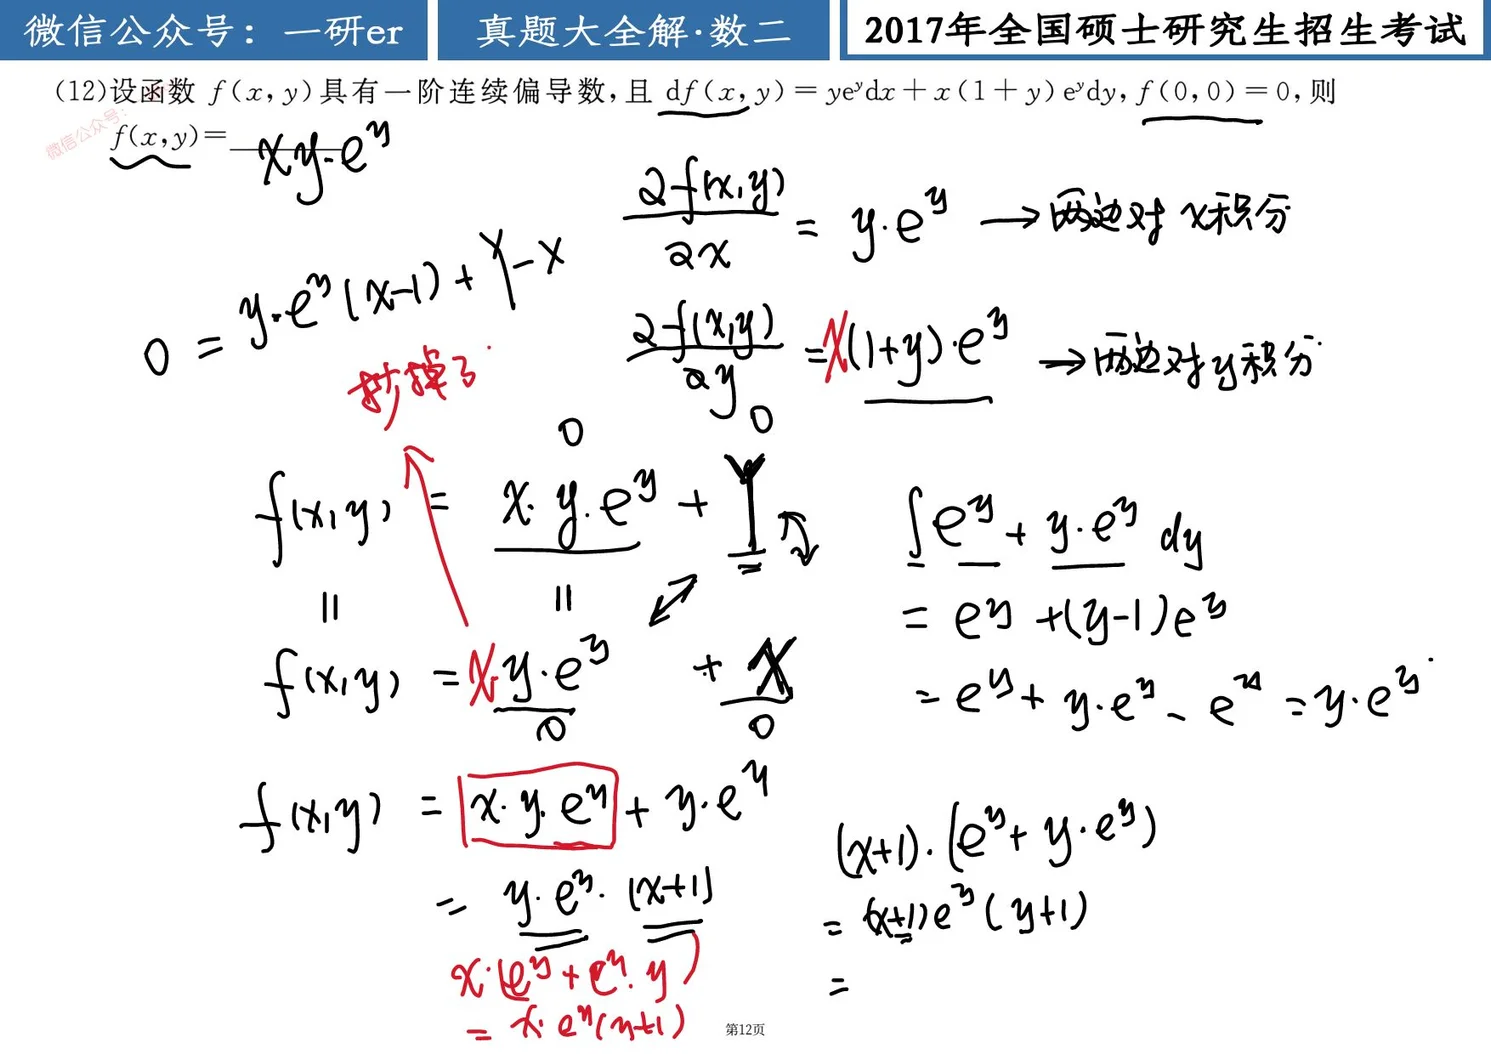 微信公众号：一研er
真题大全解·数二
2017年全国硕士研究生招生考试
(12)设函数 f(x,y)具有一阶连续偏导数,且 df(x,y)=yeʸdx+x(1+y)eʸdy,f(0,0)=0,则
f(x,y)=
xy·eʸ
微信公众号：
∂f(x,y)/∂x = y·eʸ → 两边对 x积分
0 = y·eʸ(x-1) + Y-X
抄掉了
∂f(x,y)/∂y = x(1+y)·eʸ → 两边对y积分
0 0
f(x,y) = x·y·eʸ + Y
∫eʸ + y·eʸ dy
= eʸ +(y-1)eʸ
f(x,y) = x·y·eʸ + X
0 0
= eʸ + y·eʸ - eʸ = y·eʸ
f(x,y) = x·y·eʸ + y·eʸ
= y·eʸ·(x+1)
(x+1)·(eʸ + y·eʸ)
= (x+1)eʸ(y+1)
=
x·(eʸ + eʸ·y)
= x·eʸ(y+1)
第12页